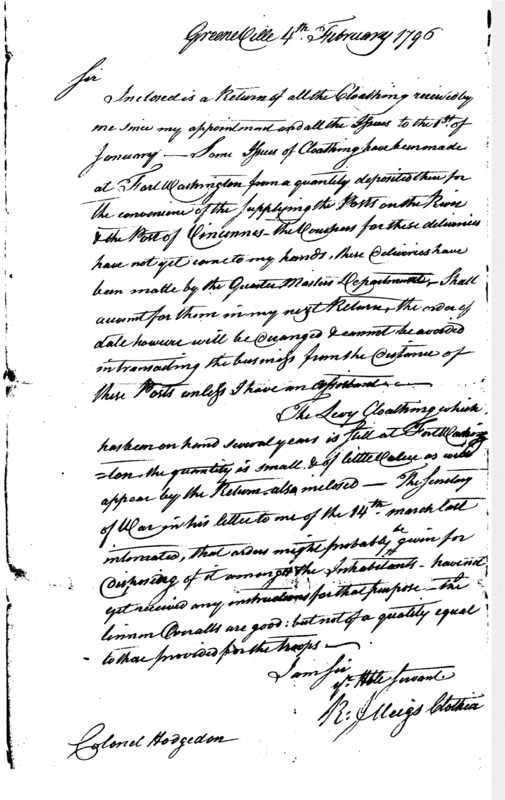 Greene Ville 4th February 1796
Sir
Inclosed is a Return of all the Cloathing received by
me since my appointment and all the Issues to the 1st of
January — Some Issues of Cloathing have been made
at Fort Washington from a quantity deposited there for
the convenience of the supplying the Posts on the River
& the Post of Vincennes – the Vouchers for these deliveries
have not yet come to my hands, these deliveries have
been made by the Quarter Masters Department, Shall
account for them in my next Return, the order of
date however will be changed & cannot be avoided
in transacting the business from the distance of
these Posts unless I have an assistant —
The Levy Cloathing which
has been on hand several years is still at Fort Washing
=ton, the quantity is small & of little Value as will
appear by the Return also inclosed — The Secretary
of War in his letter to me of the 14th march last
intimated, that orders might probably be given for
disposing of it amongst the Inhabitants – have not
yet received any instructions for that purpose – the
linnen Overalls are good: but not of a quality equal
to those provided for the troops —
I am Sir
yr. Hble Servant
R: J Meigs Clothier
Colonel Hodgedon